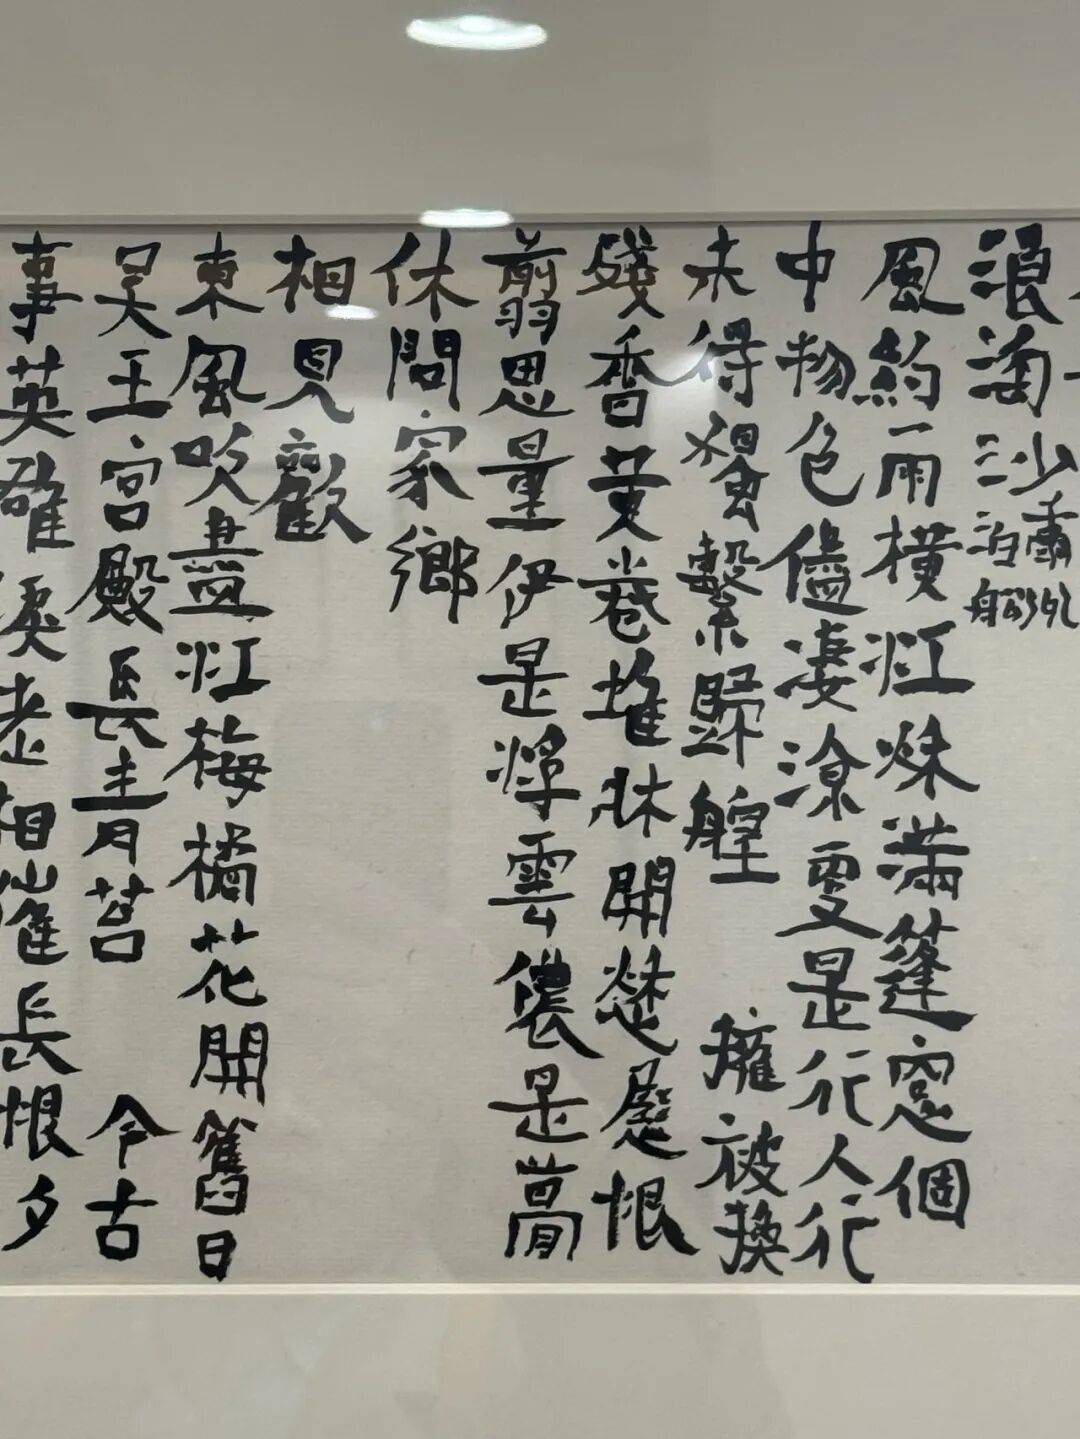 浪淘沙 康州泊船
風約雨橫江秌滿篷窓個
中物色儘凄涼更是行人行
未得獨繫歸艎 擁被換
殘香黃卷堆牀開愁展恨
翦思量伊是浮雲儂是夢
休問家鄉
相見歡
東風吹盡江梅橘花開舊日
吳王宮殿長青苔 今古
事英雄淚老相催長恨夕